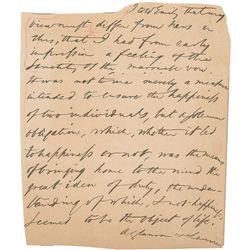 I told Emily that my
view must differ from hers in
this, that I had from early
impression a feeling of the
sanctity of the marriage vow.
It was not to me merely a measure
intended to ensure the happiness
of two individuals, but a solemn
obligation, which, whether it led
to happiness or not, was the means
of bringing home to the mind the
great idea of duty, the understanding
of which, & not happiness,
seemed to be the object of life.